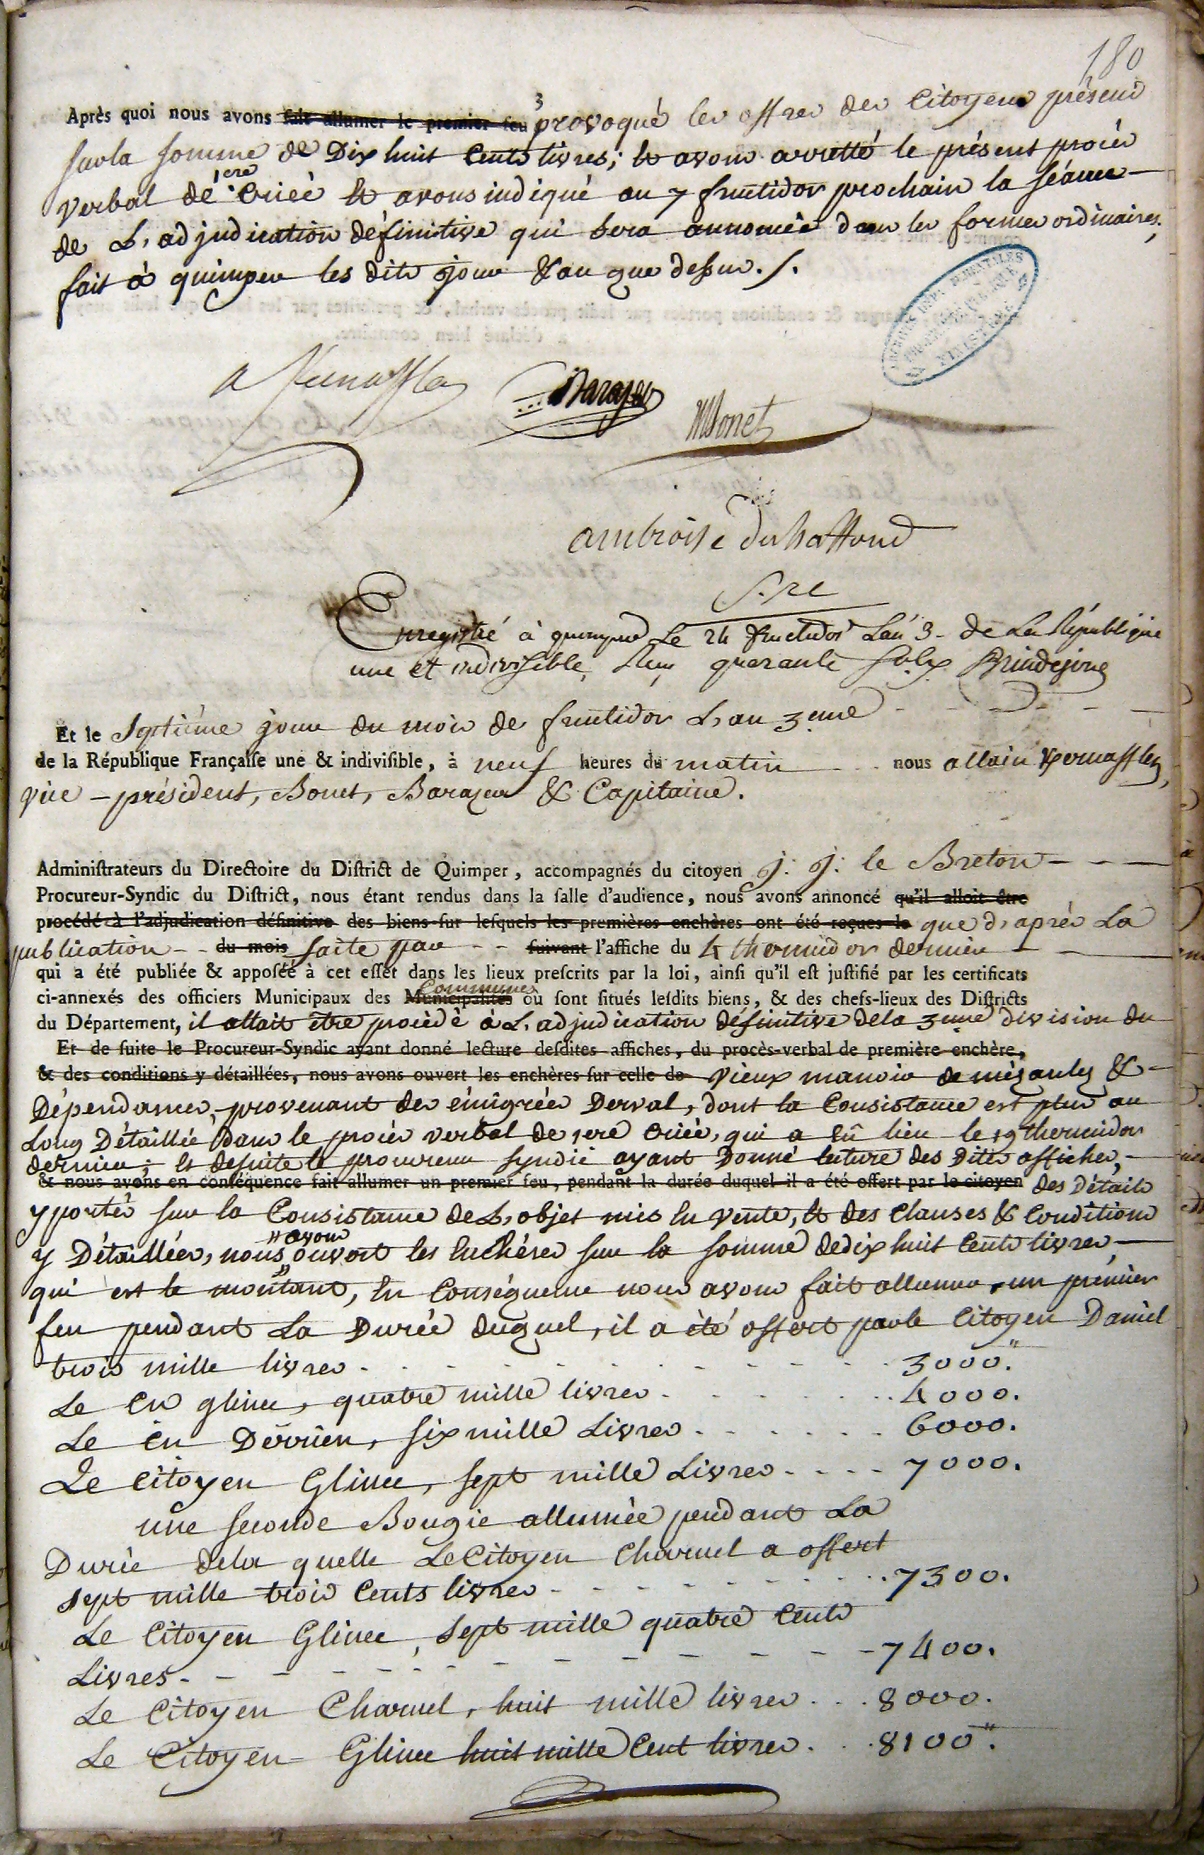 180
Après quoi nous avons fait allumer le premier feu 3 provoqué les offres des Citoyens présens
sur la somme de Dix huit Cents livres; et avons arretté le présent procès
verbal de 1ere Criée et avons indiqué au 7 fructidor prochain la séance
de L'adjudication définitive qui sera annoncée dans les formes ordinaires;
fait à quimper les dits jour & an que dessus./.
ARCHIVES DÉPARTEMENTALES
FINISTÈRE
Barazer
Bonet
ambroise Duhaffond
S.re
Enregistré à quimper Le 24 fructidor L'an 3 de La République
une et indivisible, quarante sols
Et le Septième jour du mois de fructidor L'an 3.eme
de la République Française une & indivisible, à neuf heures du matin nous allain Kernafflen,
vice-président, Bonet, Barazer & Capitaine.
Administrateurs du Directoire du District de Quimper, accompagnés du citoyen J: J: le Breton
Procureur-Syndic du District, nous étant rendus dans la salle d'audience, nous avons annoncé qu'il alloit être
procédé à l'adjudication définitive des biens sur lesquels les premières enchères ont été reçues le que d'après La
publication du mois faite par suivant l'affiche du 4 thermidor dernier
qui a été publiée & apposée à cet effet dans les lieux prescrits par la loi, ainsi qu'il est justifié par les certificats
ci-annexés des officiers Municipaux des Municipalités Communes où sont situés lesdits biens, & des chefs-lieux des Districts
du Département, il allait être procédé à L'adjudication définitive de la 3eme division du
Et de suite le Procureur-Syndic ayant donné lecture desdites affiches, du procès-verbal de première enchère,
& des conditions y détaillées, nous avons ouvert les enchères sur celle de Vieux manoir de mesanles &
Dépendances, provenant des émigrés Derval, dont la Consistance est plus au
Long Détaillée dans le procès verbal de 1ere Criée, qui a eû lieu le 19 thermidor
dernier; et desuite le procureur syndic ayant Donné lecture des Dites affiches,
& nous avons en conséquence fait allumer un premier feu, pendant la durée duquel il a été offert par le citoyen des Détails
y portés sur la Consistance de L'objet mis En vente, et des Clauses & Conditions
y Détaillées, nous avons ouvert les Enchères sur la somme de dix huit Cents livres,
qui est le montant, En Conséquence nous avons fait allumer un prémier
feu pendant La Durée duquel, il a été offert par le Citoyen Daniel
trois mille livres 3000."
Le Cn glinec, quatre mille livres 4000.
Le Cn Derrien, six mille Livres 6000.
Le Citoyen Glinec, sept mille Livres 7000.
une seconde Bougie allumée pendant La
Durée dela quelle Le Citoyen Charuel a offert
sept mille trois Cents livres 7300.
Le Citoyen Glinec, sept mille quatre Cents
Livres 7400.
Le Citoyen Charuel, huit mille livres 8000.
Le Citoyen Glinec huit mille Cent livres 8100".